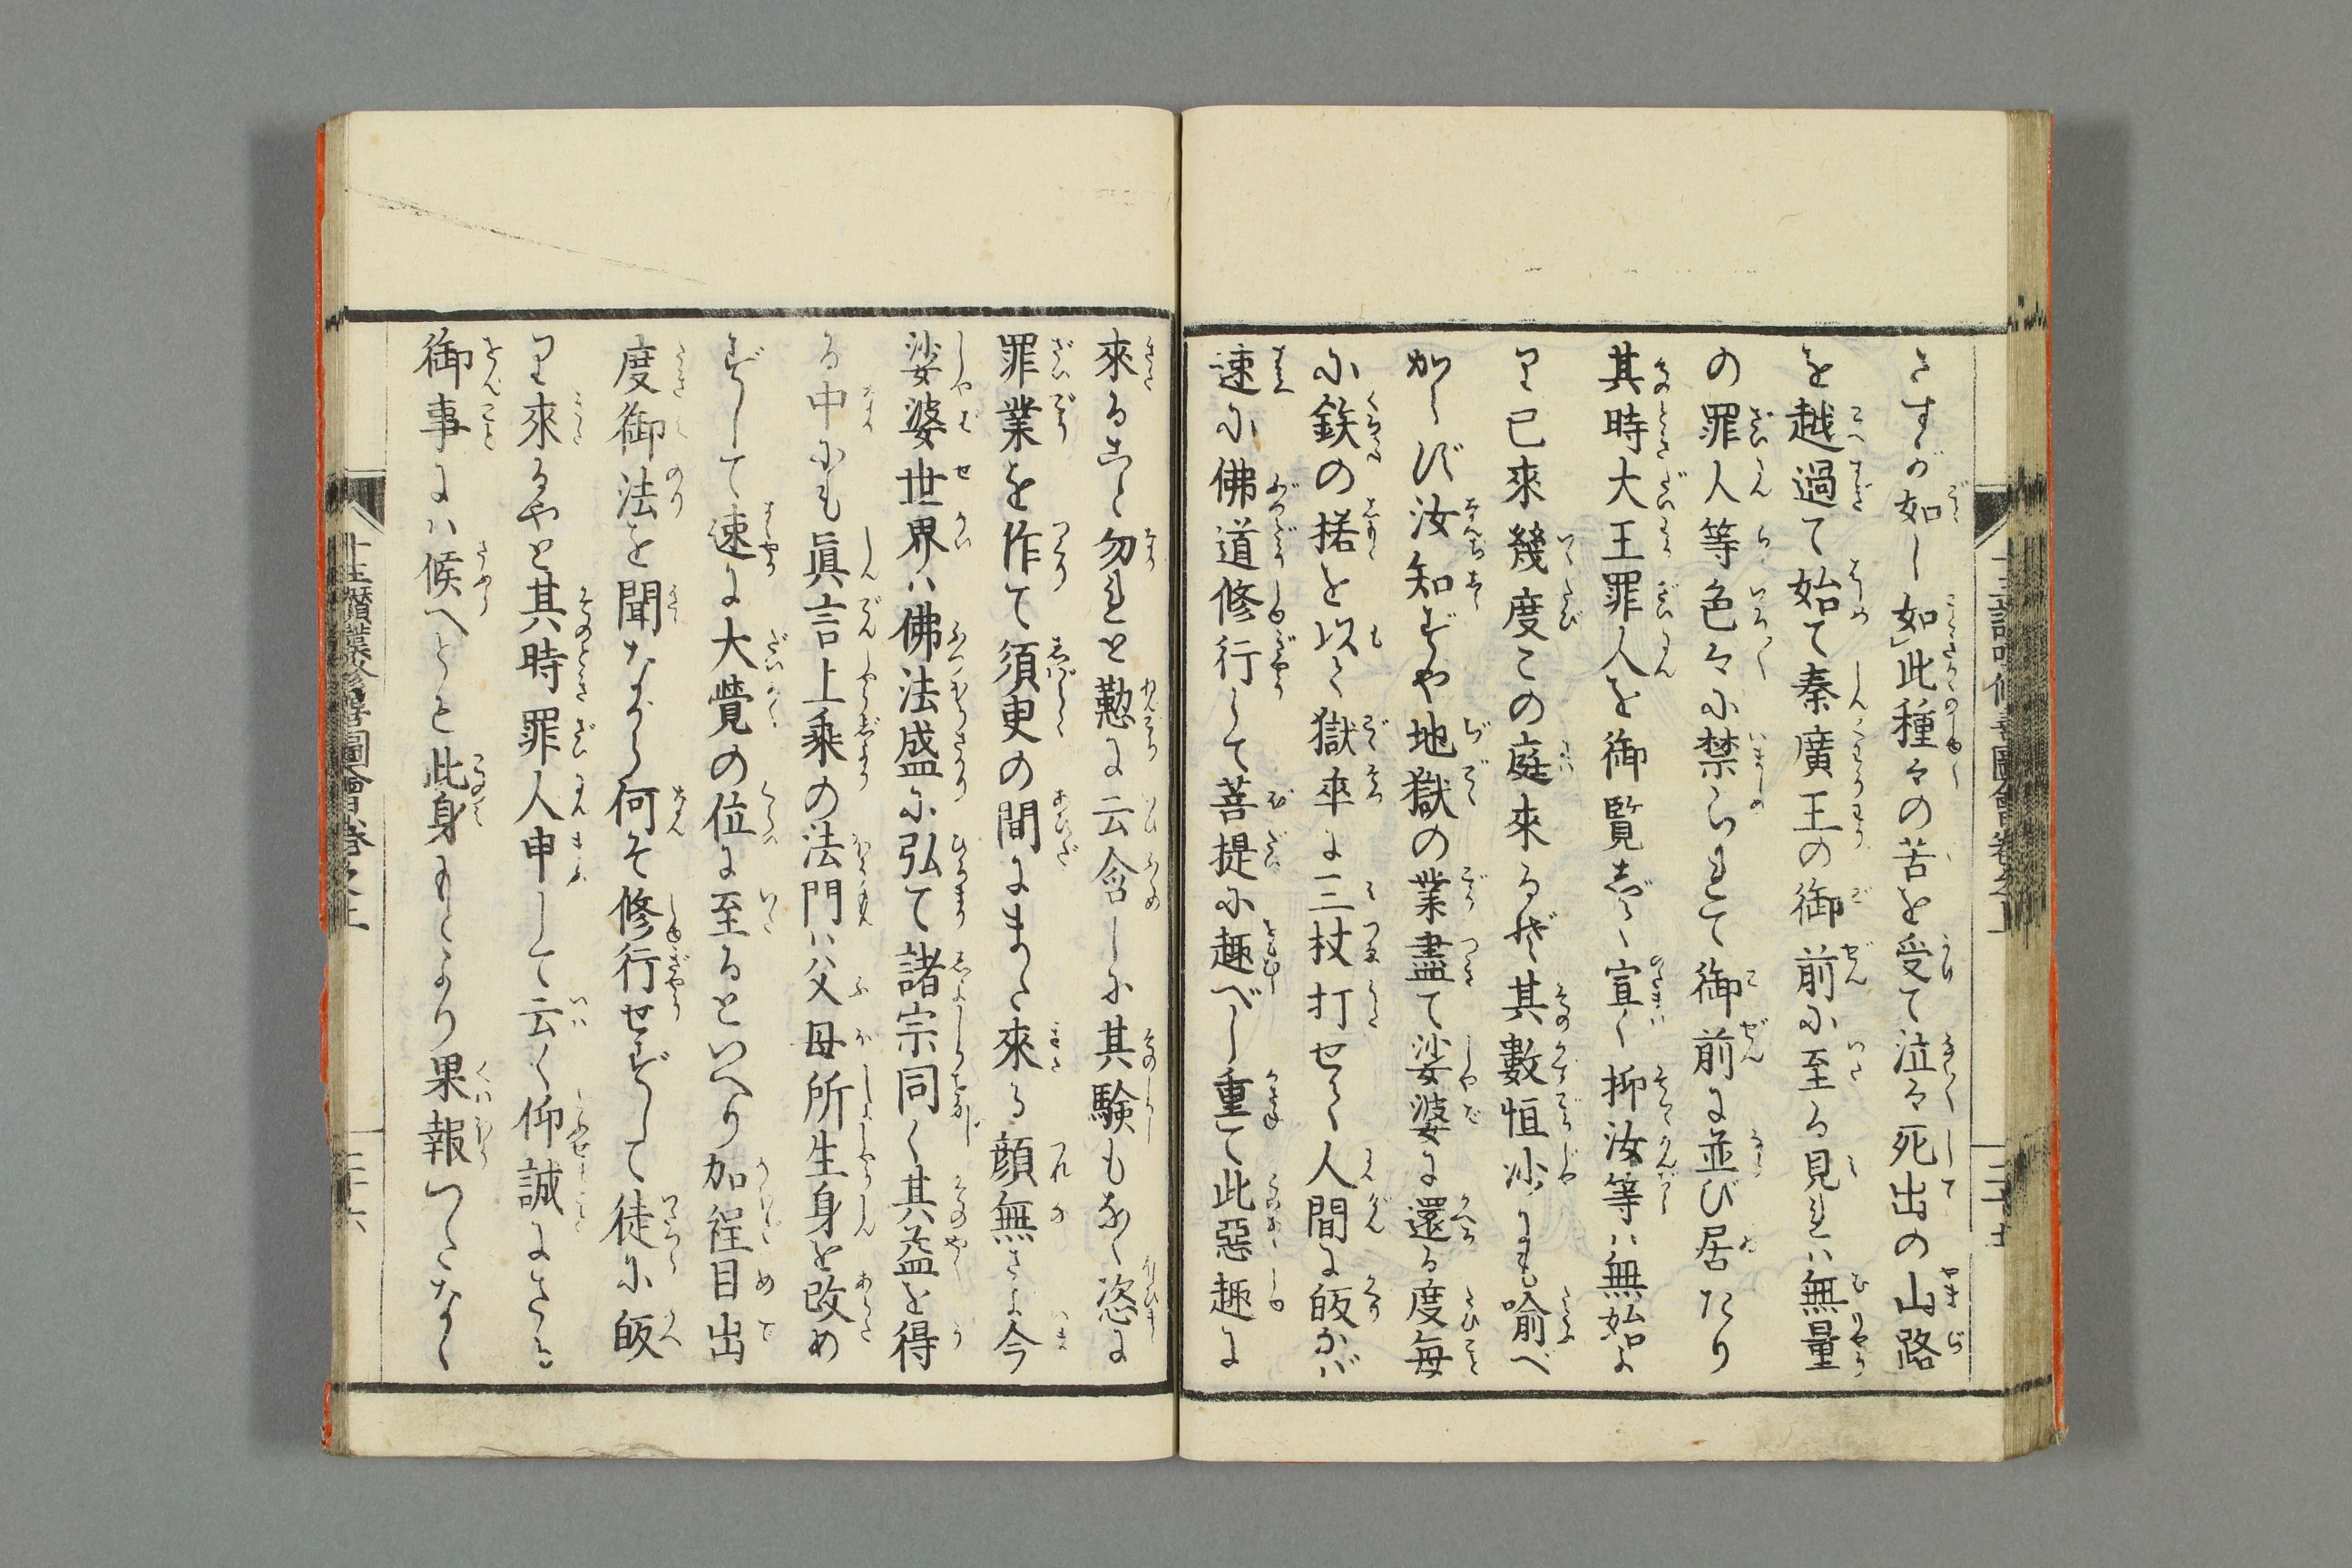 さすが如し如此種々の苦を受て泣々死出の山路
を越過て始て秦廣王の御前に至る見れハ無量
の罪人等色々に禁られて御前に並び居たり
其時大王罪人を御覧じて宣く抑汝等ハ無始よ
り已來幾度この庭來るぞ其數恒沙にも喩べ
からず汝知ずや地獄の業盡て娑婆に還る度毎
に鉄の楉を以て獄卒に三杖打せて人間に皈らバ
速に佛道修行して菩提に趣べし重て此惡趣に
來ること勿れと懃に云含しに其験もなく恣に
罪業を作て須臾の間にまた來る顔無さよ今
娑婆世界ハ佛法盛に弘て諸宗同く其益を得
る中にも眞言上乘の法門ハ父母所生身を改め
ずして速に大覺の位に至るといへり加程目出
度御法を聞ながら何そ修行せずして徒に皈
り來るやと其時罪人申して云く仰誠にさる
御事にハ候へとも此身もとより果報つたなく
十王讃歎修善圖會卷之上
二十六